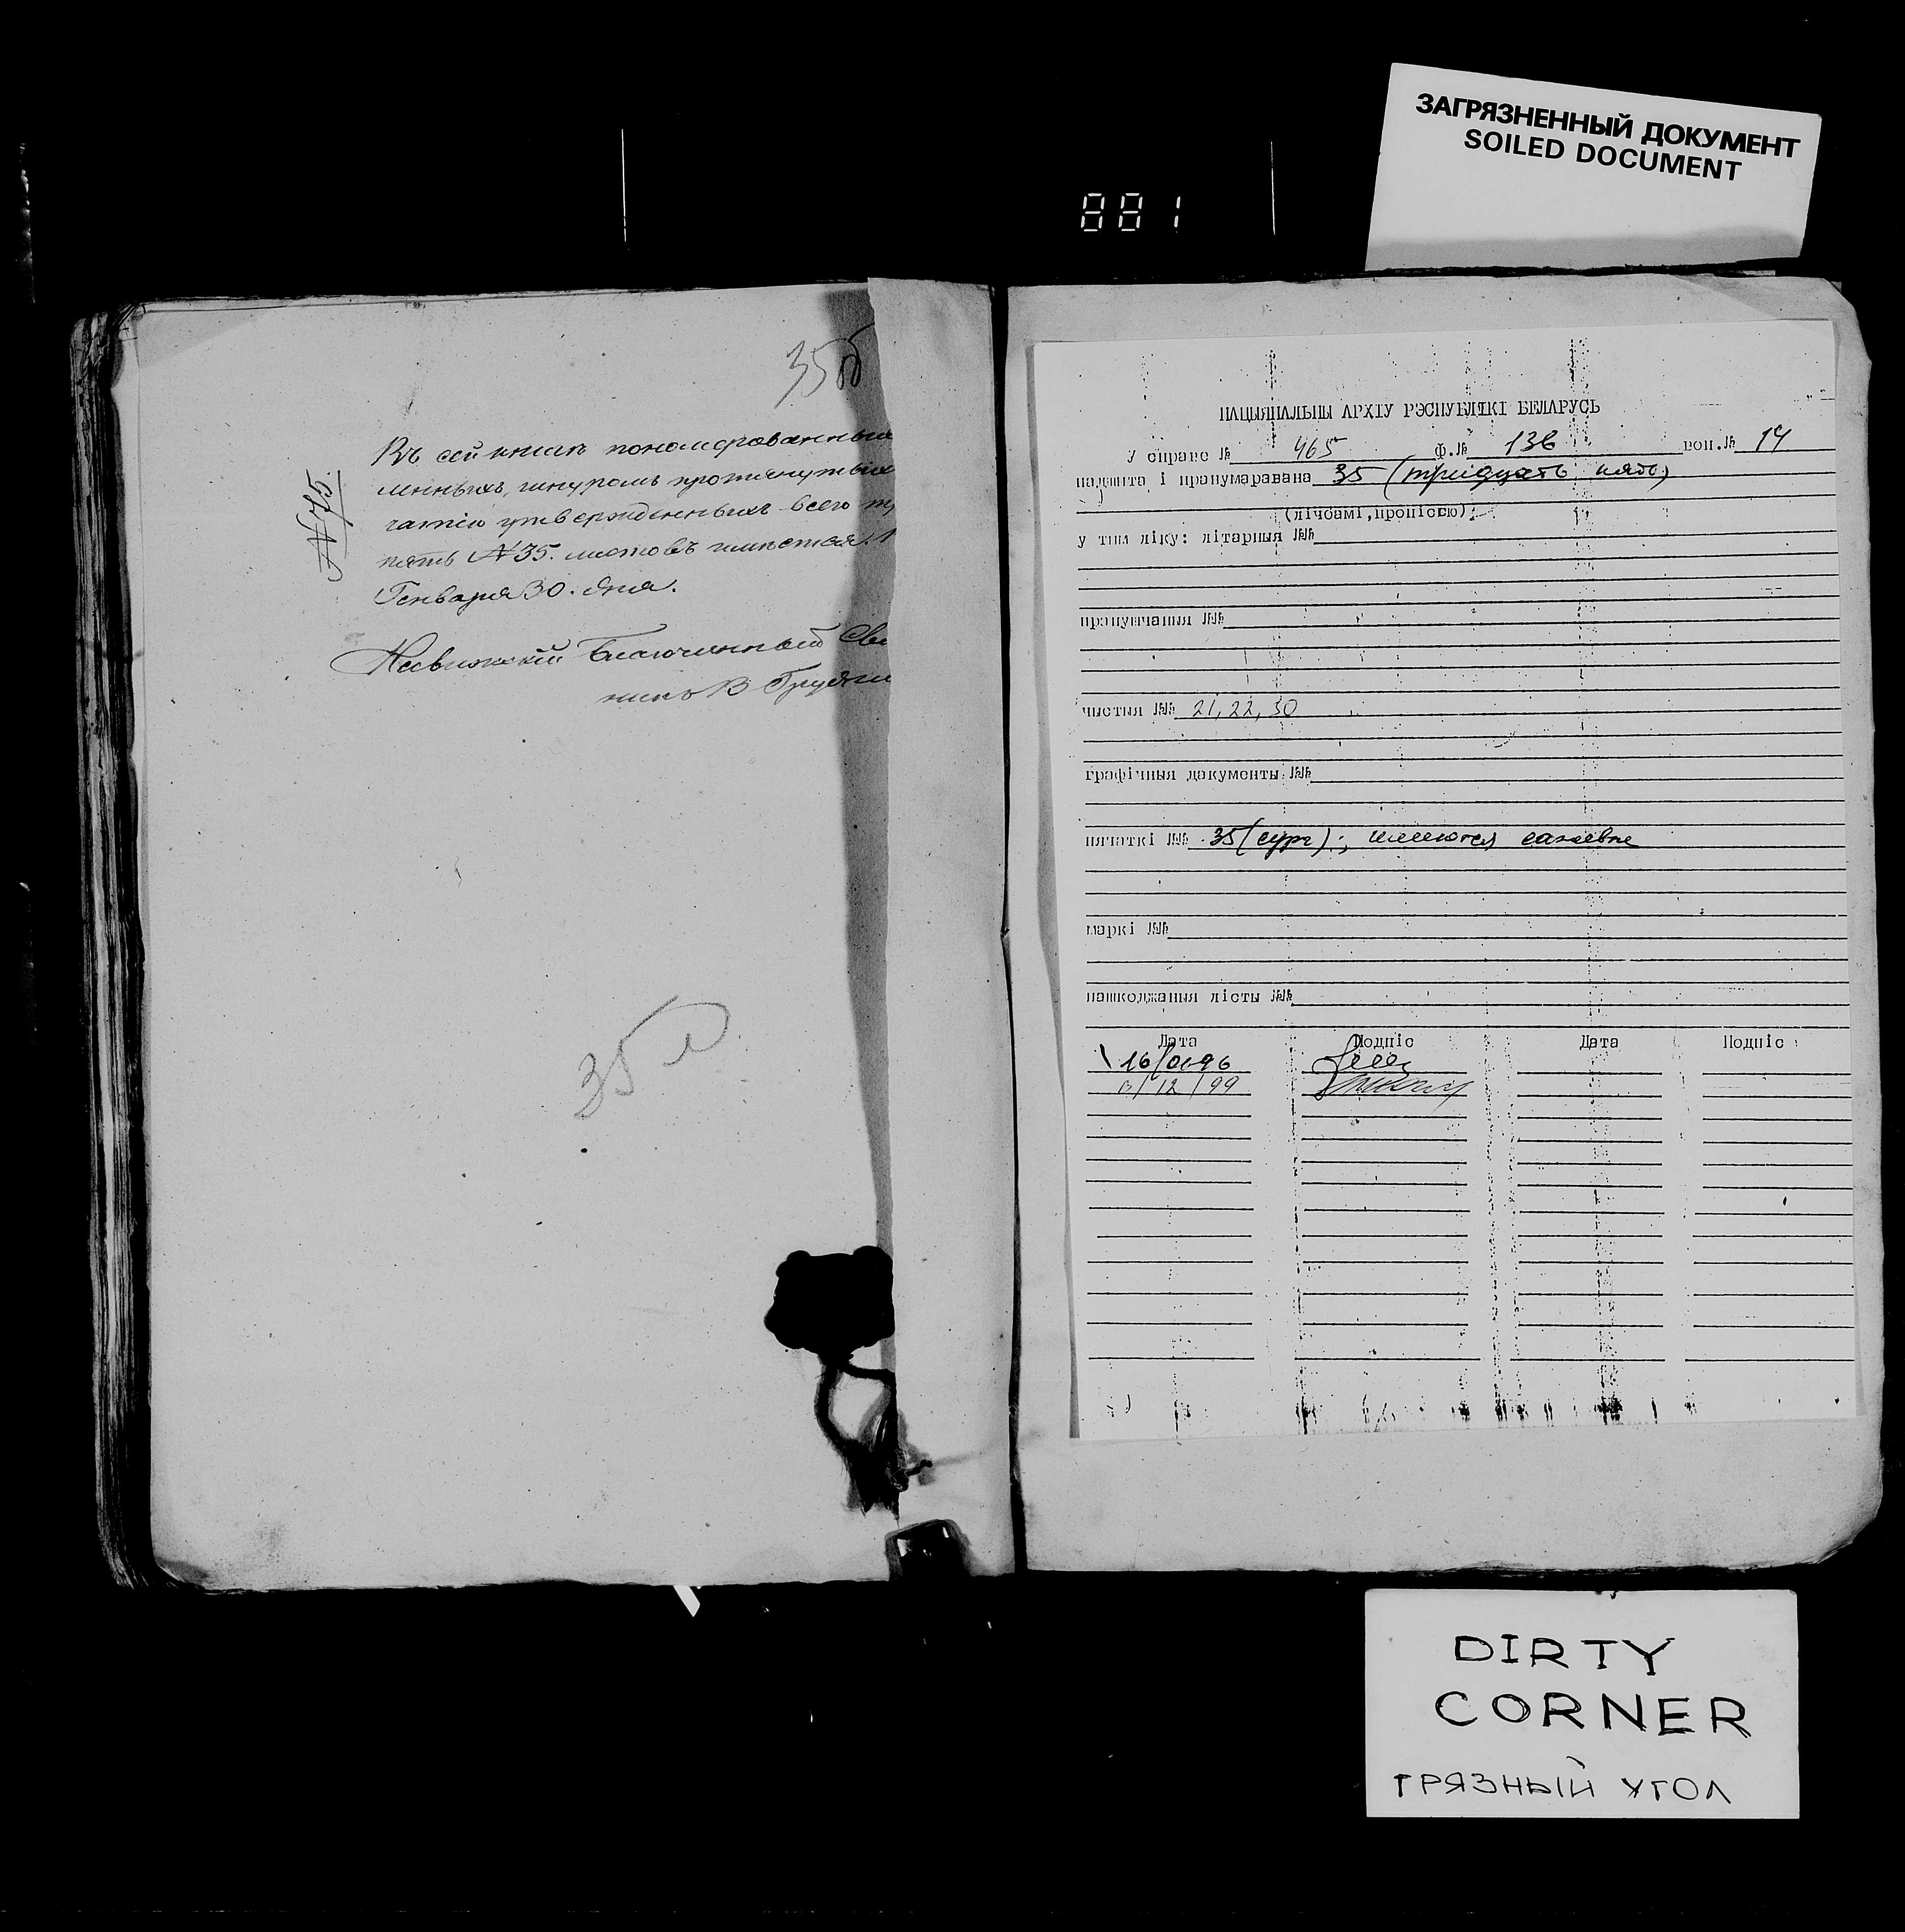 ЗАГРЯЗНЕННЫЙ ДОКУМЕНТ
SOILED DOCUMENT
881
35об
№75.
Въ сей книгѣ пономерованныхъ
шнуромъ протянутых
утвержденныхъ всего
пять №35. листовъ имѣется.
Генваря 30. дня.
Несвижскій Благочинный Св
никъ В
35 л
НАЦЫЯНАЛЬНЫ АРХІУ РЭСПУБЛІКІ БЕЛАРУСЬ
У справе № 465 Ф.№ 136 воп.№ 14
падшыта і пранумаравана 35 (тридцать пять)
(лічбамі, пропіссю)
у тым ліку: літарныя №№
прапушчаныя №№
чыстыя №№ 21, 22, 30
графічныя дакументы №№
пячаткі №№ 35 (сург); имеются
маркі №№
пашкоджаныя лісты №№
Дата Подпіс Дата Подпіс
/12/99
DIRTY
CORNER
ГРЯЗНЫЙ УГОЛ